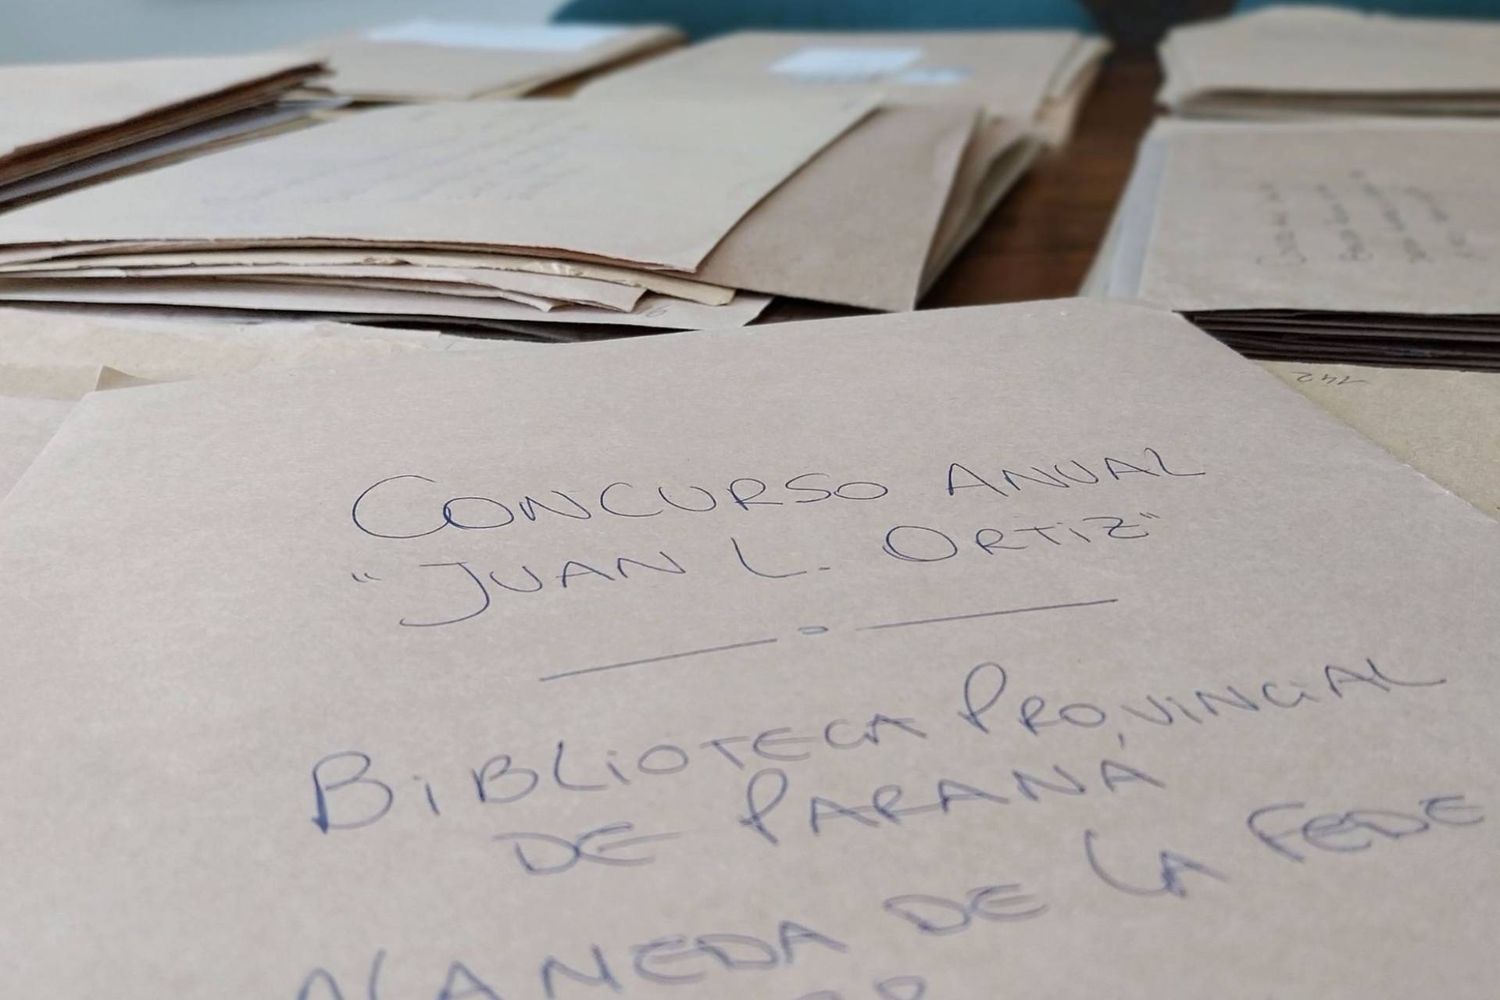 CONCURSO ANUAL
"JUAN L. ORTIZ"
BIBLIOTECA PROVINCIAL
DE PARANÁ
ALAMEDA DE LA FEDE
142